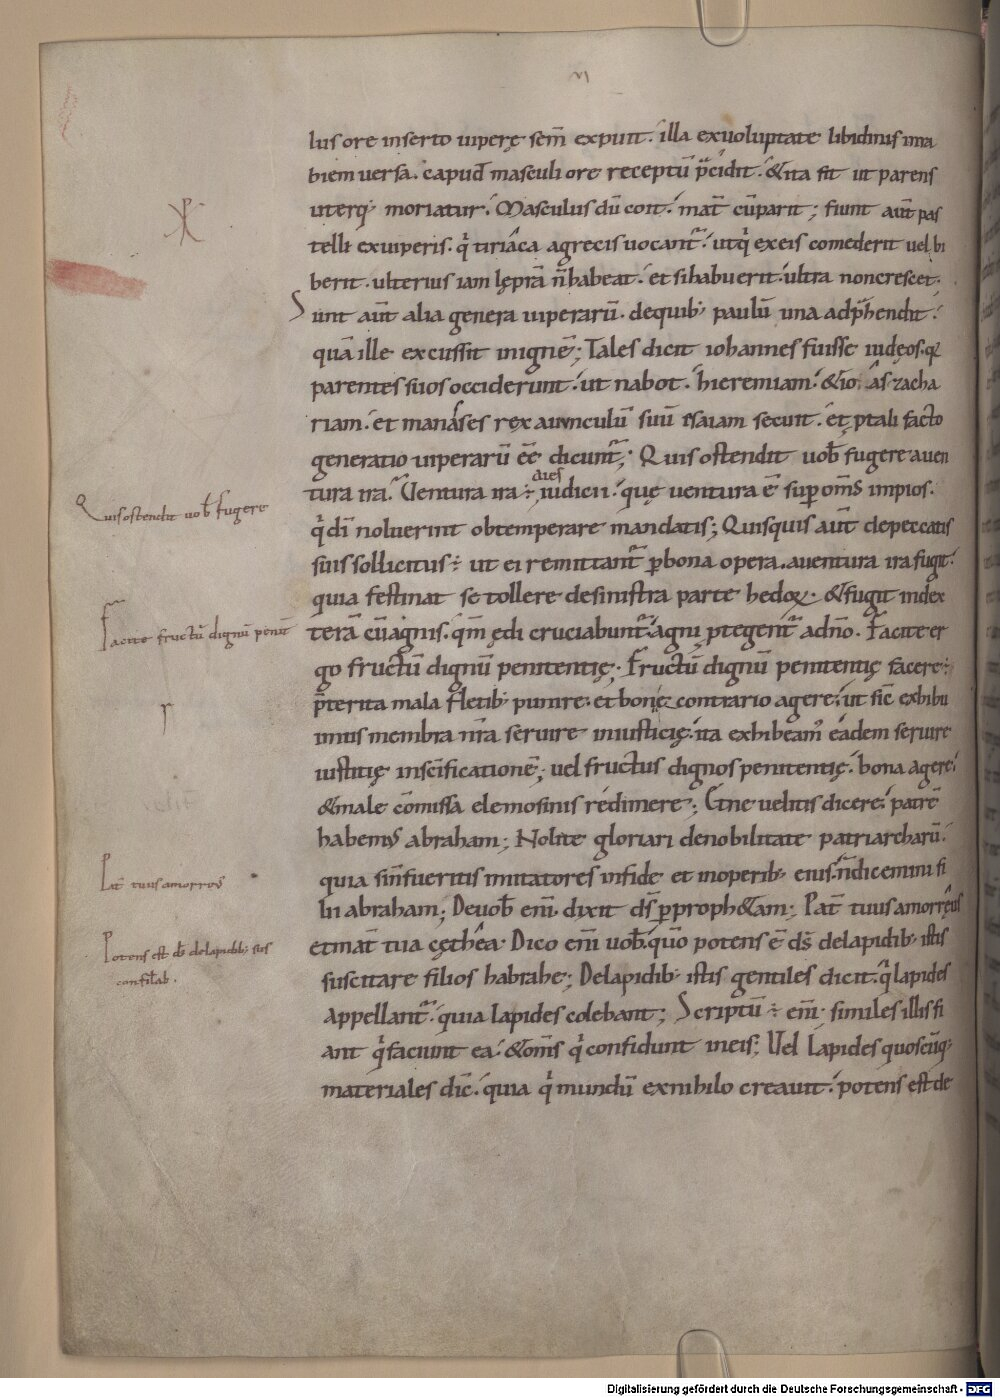 VI
lus ore inserto uiperę sem̄ expuit. illa ex uoluptate libidinis in ra
biem uersa. capud masculi ore receptū p̄cidit. & ita fit ut parens
uterq; moriatur. Masculus dū coit. mat̄ cū parit; fiunt aūt pas
telli ex uiperis. q̇ tiriáca a grecis uocant᷑. ut q̇ ex eis comederit uel bi
berit. ulterius iam leprā n̄ habeat. et si habuerit. ultra non crescet.
Sunt aūt alia genera uiperarū. de quib; paulū una adp̄hendit.
quā ille excussit in ignē; Tales dicit iohannes fuisse iudęos. q̇
parentes suos occiderunt. ut nabot. hieremiam. & ioas zacha
riam. et manasses rex auunculū suū esaiam secuit. et p tali facto
generatio uiperarū eē dicunt᷑; Quis ostendit uob̄ fugere a uen
tura ira. Uentura ira ÷ dies iudicii. quę uentura ē sup om̄s impios.
q̇ dī noluerint obtemperare mandatis; Quisquis aūt de peccatis
suis sollicitus ÷ ut ei remittant᷑ p bona opera. a uentura ira fugit.
quia festinat se tollere de sinistra parte hedoꝝ. & fugit in dex
terā cū agnis. qm̄ ędi cruciabunt᷑. agni ptegent᷑ a dn̄o. Facite er
go fructū dignū penitentię. Fructū dignū penitentię facere ÷
p̄terita mala fletib; punire. et bonis e contrario agere. ut sic̄ exhibu
imus membra nr̄a seruire iniusticię. ita exhibeam᷒ eadem seruire
iustitię in sc̄ificationē; uel fructus dignos penitentię. bona agere.
& male cōmissa elemosinis redimere; Et ne uelitis dicere. patrē
habemus abraham; Nolite gloriari de nobilitate patriarcharū.
quia si n̄ fueritis imitatores in fide et in operib; eius. n̄ dicemini fi
lii abraham; De uob̄ enī dixit ds̄ p proph&am; Pat̄ tuus amorreus
et mat̄ tua cethea. Dico enī uob̄. quō potens ē ds̄ de lapidib; istis
suscitare filios habrahe; De lapidib; istis gentiles dicit. q̇ lapides
appellant᷑. quia lapides colebant; Scriptū ÷ enī. similes illis fi
ant q̇ faciunt ea. & om̄s q̇ confidunt in eis; Uel lapides quoscūq;
materiales dic̄. quia q̇ mundū ex nihilo creauit. potens est de
Quis ostendit uob̄ fugere
Facite fructū dignū penit̄
r
Pat̄ tuus amorreus
Potens est ds̄ de lapidib; ists